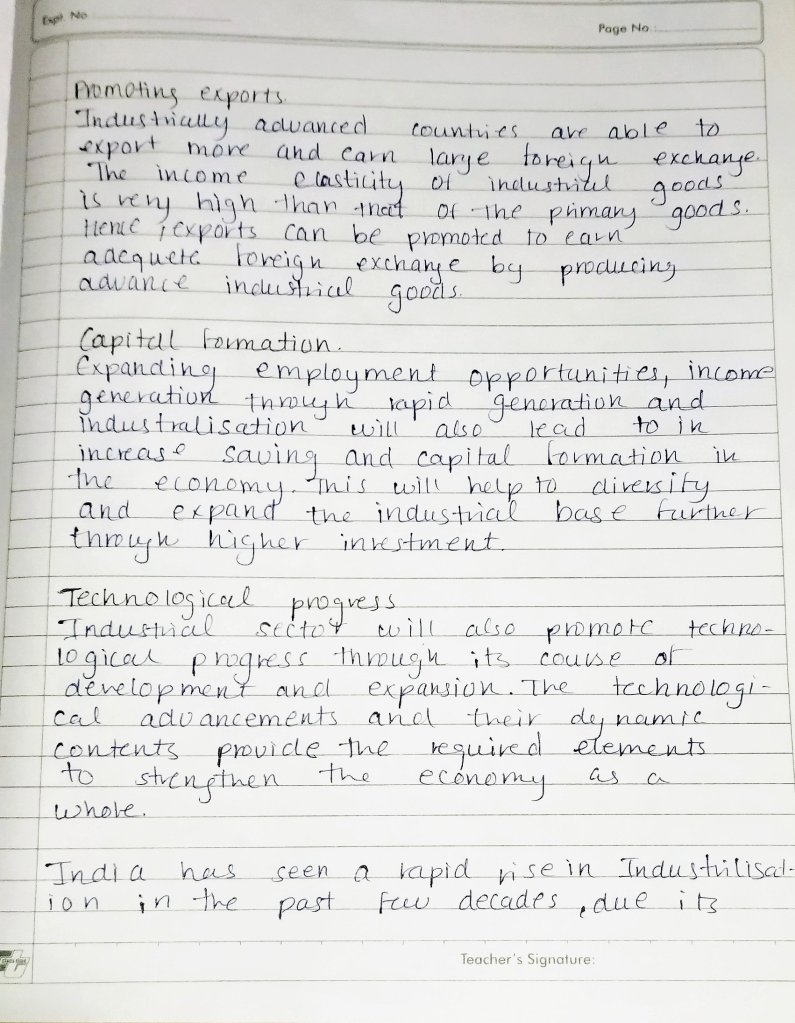 Expt. No
Page No.
Promoting exports.
Industrially advanced countries are able to
export more and earn large foreign exchange.
The income elasticity of industrial goods
is very high than that of the primary goods.
Hence, exports can be promoted to earn
adequete foreign exchange by producing
advance industrial goods.
Capital formation.
Expanding employment opportunities, income
generation through rapid generation and
industralisation will also lead to in
increase saving and capital formation in
the economy. This will help to diversify
and expand the industrial base further
through higher investment.
Technological progress
Industrial sector will also promote techno-
logical progress through its course of
development and expansion. The technologi-
cal advancements and their dynamic
contents provide the required elements
to strengthen the economy as a
whole.
India has seen a rapid rise in Industrilisat-
ion in the past few decades, due its
Teacher's Signature: